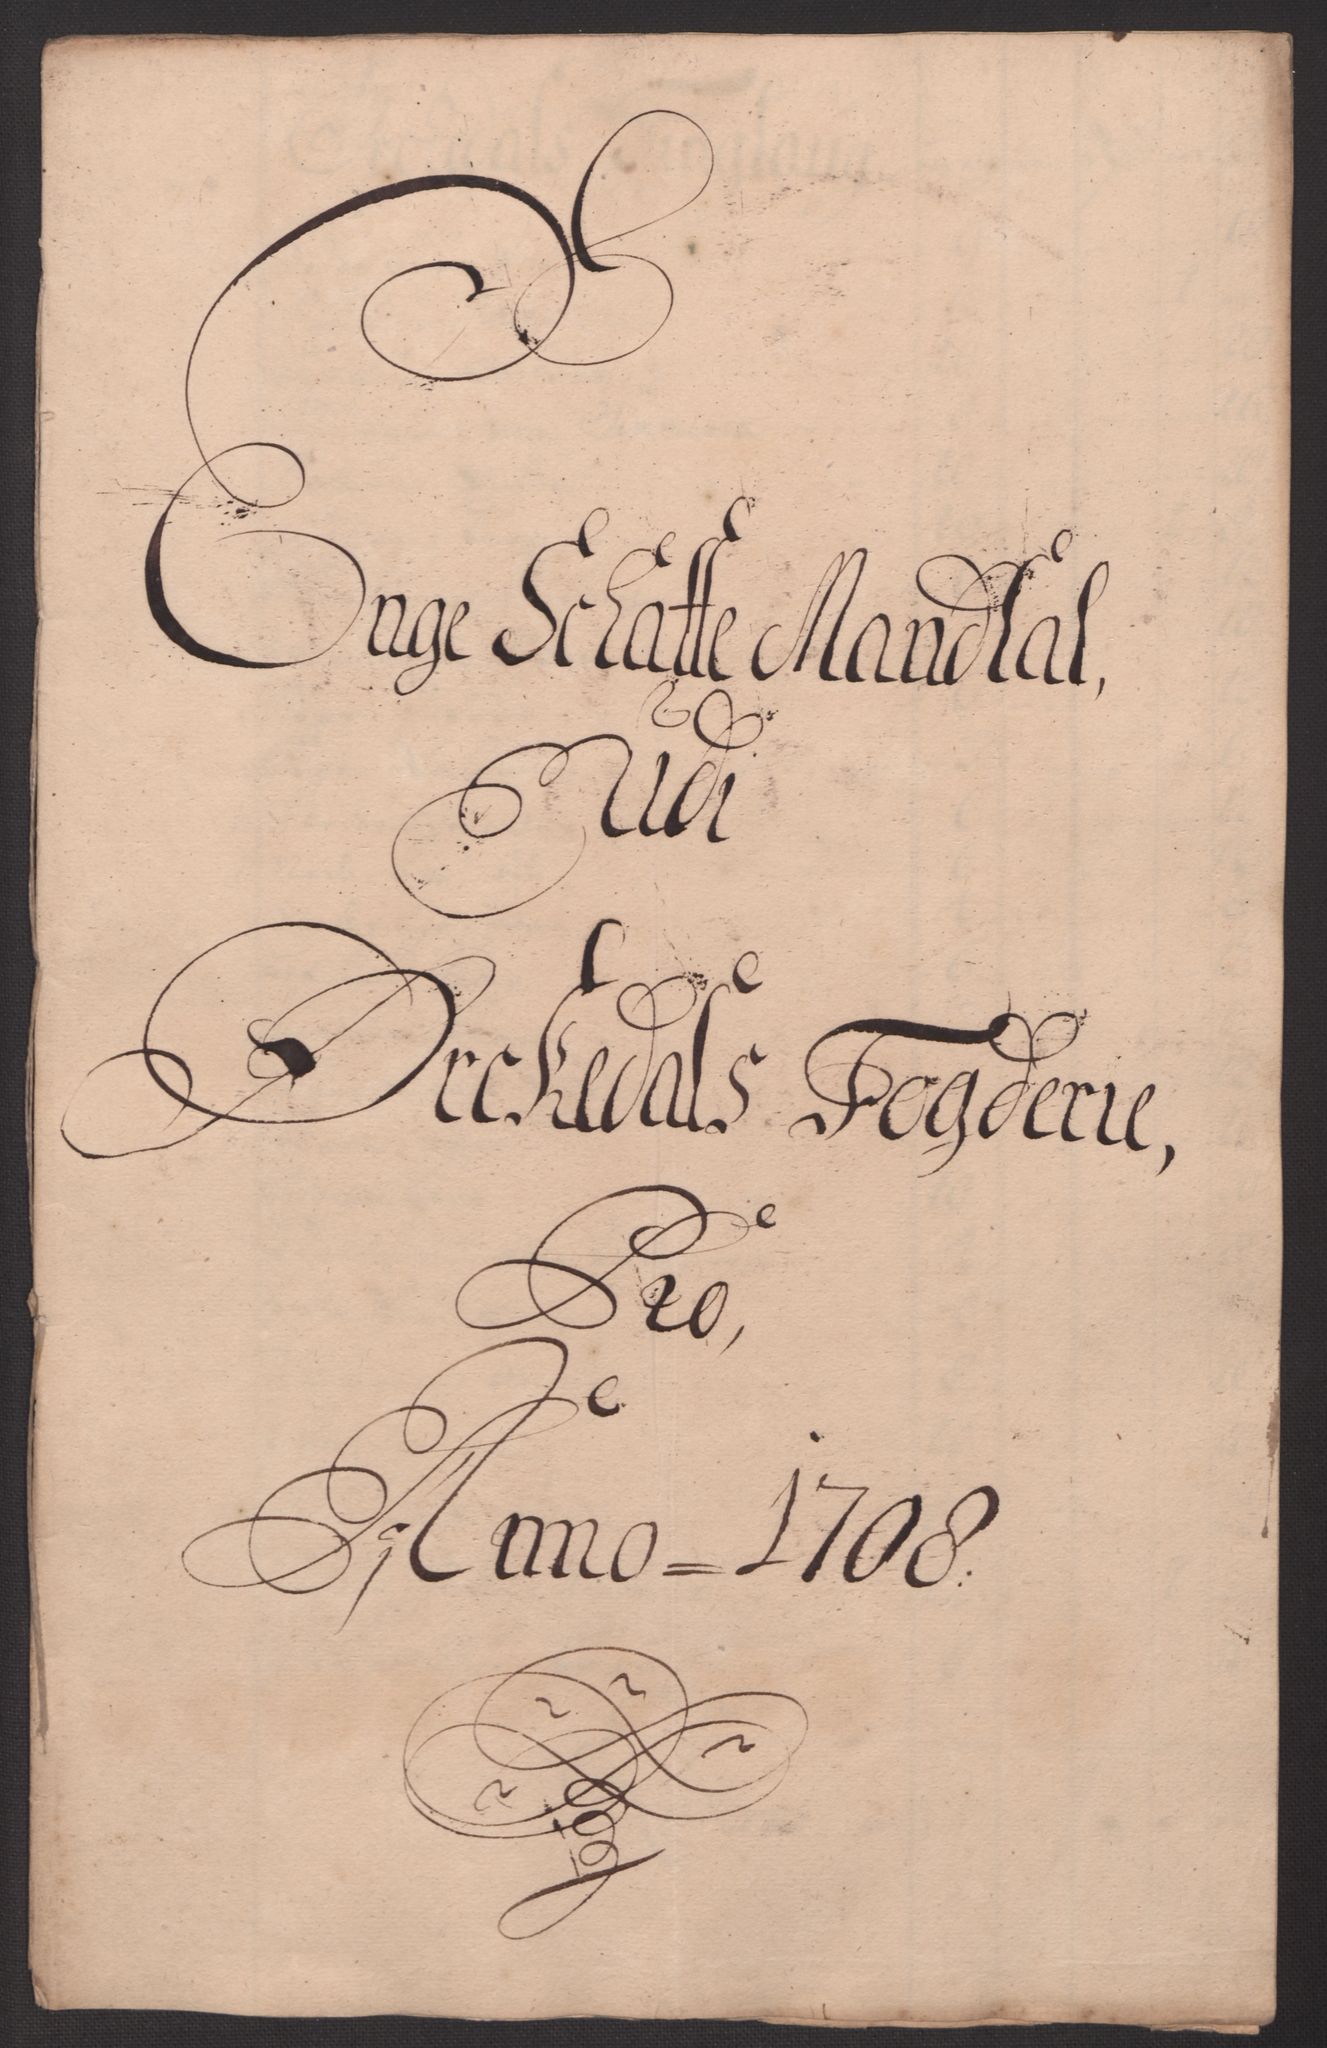 Enge Schatte Mandtal,
Udi
Orckedals Fogderie,
Pro,
Anno = 1708.